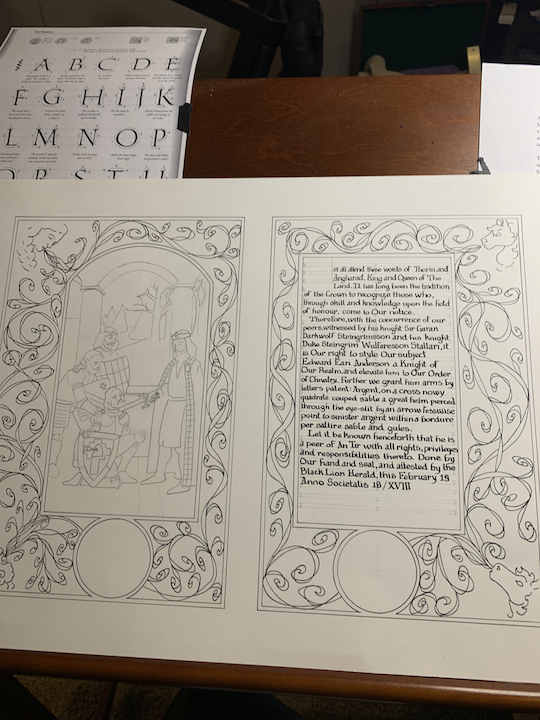 A B C D E
F G H I J K
L M N O P
Q R S T U
et all attend these words of Thorin and
Angharad, King and Queen of The
Land. It has long been the tradition
of the Crown to recognize those who,
through skill and knowledge upon the field
of honour, come to Our notice.
Therefore, with the concurrence of our
peers, witnessed by his knight Sir Garan
Darkwolf Steingrimsson and his knight
Duke Steingrim Wulfaresson Stallari, it
is Our right to style Our subject
Edward Ean Anderson a Knight of
Our Realm, and elevate him to Our Order
of Chivalry. Further we grant him arms by
letters patent: Argent, on a cross nowy
quadrate couped sable a great helm pierced
through the eye-slit by an arrow fesswise
point to sinister argent within a bordure
per saltire sable and gules.
Let it be known henceforth that he is
a peer of An Tir with all rights, privileges
and responsibilities thereto. Done by
Our hand and seal, and attested by the
Black Lion Herald, this February 19
Anno Societatis 18 / XVIII